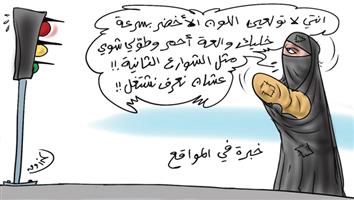 انتي لا تولعي اللون الأخضر بسرعة
خليك والعة أحمر وطوّلي شوي
مثل الشوارع الثانية !!
عشان نعرف نشتغل !!
خبرة في المواقع